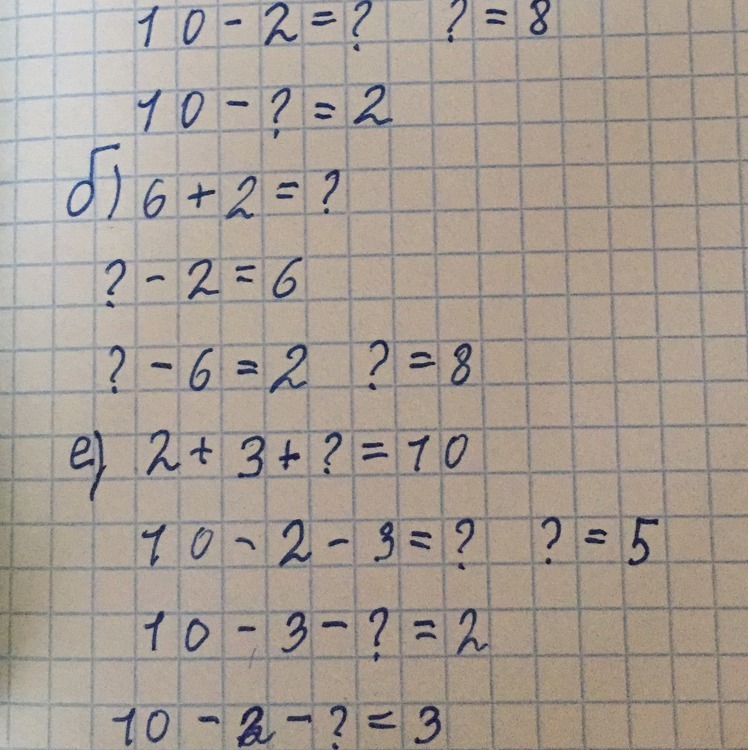 10 - 2 = ? ? = 8
10 - ? = 2
б) 6 + 2 = ?
? - 2 = 6
? - 6 = 2 ? = 8
е) 2 + 3 + ? = 10
10 - 2 - 3 = ? ? = 5
10 - 3 - ? = 2
10 - 2 - ? = 3